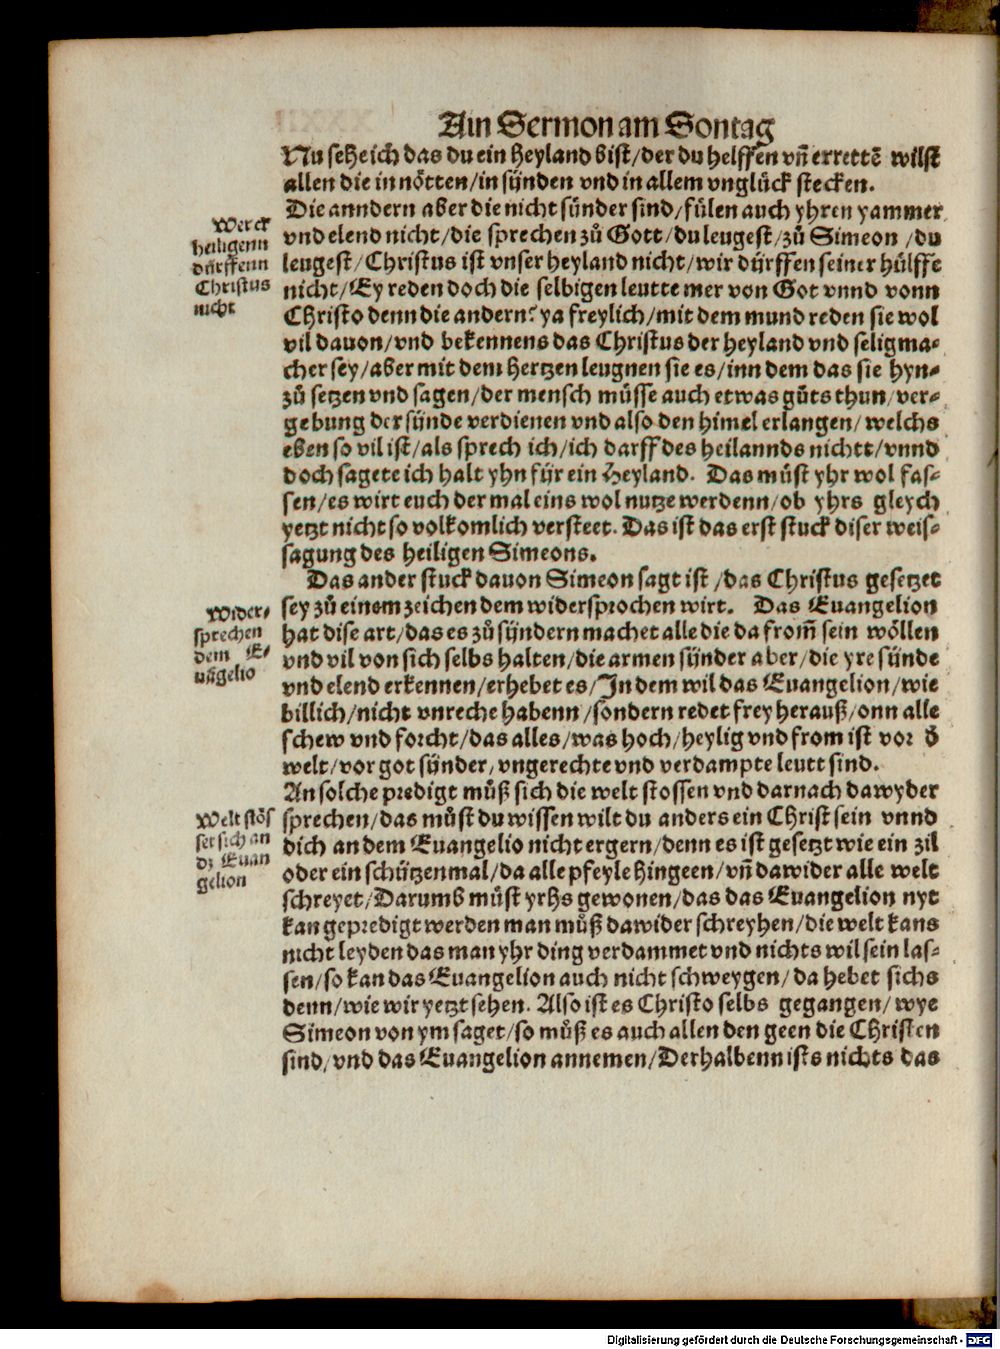 Ain Sermon am Sontag
Nu sehe ich das du ein heyland bist/der du helffen vñ errettẽ wilst
allen die in nötten/in sünden vnd in allem vnglück stecken.
Die anndern aber die nicht sünder sind/fülen auch yhren yammer
vnd elend nicht/die sprechen zů Gott/du leugest/zů Simeon /du
leugest/Christus ist vnser heyland nicht/wir dürffen seiner hülffe
nicht/Ey reden doch die selbigen leutte mer von Got vnnd vonn
Christo denn die andern? ya freylich/mit dem mund reden sie wol
vil dauon/vnd bekennens das Christus der heyland vnd seligma-
cher sey/aber mit dem hertzen leugnen sie es/inn dem das sie hyn-
zů setzen vnd sagen/der mensch müsse auch etwas gůts thun/ver-
gebung der sünde verdienen vnd also den himel erlangen/welchs
eben so vil ist/als sprech ich/ich darff des heilannds nichtt/vnnd
doch sagete ich halt yhn für ein Heyland. Das můst yhr wol fas-
sen/es wirt euch der mal eins wol nutze werdenn/ob yhrs gleych
yetzt nicht so volkomlich versteet. Das ist das erst stuck diser weis-
sagung des heiligen Simeons.
Das ander stuck dauon Simeon sagt ist/das Christus gesetzet
sey zů einem zeichen dem widersprochen wirt. Das Euangelion
hat dise art/das es zů sündern machet alle die da from̃ sein wöllen
vnd vil von sich selbs halten/die armen sünder aber/die yre sünde
vnd elend erkennen/erhebet es/In dem wil das Euangelion/wie
billich/nicht vnreche habenn/sondern redet frey herauß/onn alle
schew vnd forcht/das alles/was hoch/heylig vnd from ist vor ð
welt/vor got sünder/vngerechte vnd verdampte leutt sind.
An solche predigt můß sich die welt stossen vnd darnach dawyder
sprechen/das můst du wissen wilt du anders ein Christ sein vnnd
dich an dem Euangelio nicht ergern/denn es ist gesetzt wie ein zil
oder ein schützenmal/da alle pfeyle hingeen/vñ dawider alle welt
schreyet/Darumb můst yrhs gewonen/das das Euangelion nyt
kan gepredigt werden man můß dawider schreyhen/die welt kans
nicht leyden das man yhr ding verdammet vnd nichts wil sein las-
sen/so kan das Euangelion auch nicht schweygen/da hebet sichs
denn/wie wir yetzt sehen. Also ist es Christo selbs gegangen/wye
Simeon von ym saget/so můß es auch allen den geen die Christen
sind/vnd das Euangelion annemen/Derhalbenn ists nichts das
Werck
heiligenn
dürffenn
Christus
nicht
Wider-
sprechen
dem E-
uãgelio
Welt stös
set sich an
dz Euan
gelion
Digitalisierung gefördert durch die Deutsche Forschungsgemeinschaft - DFG